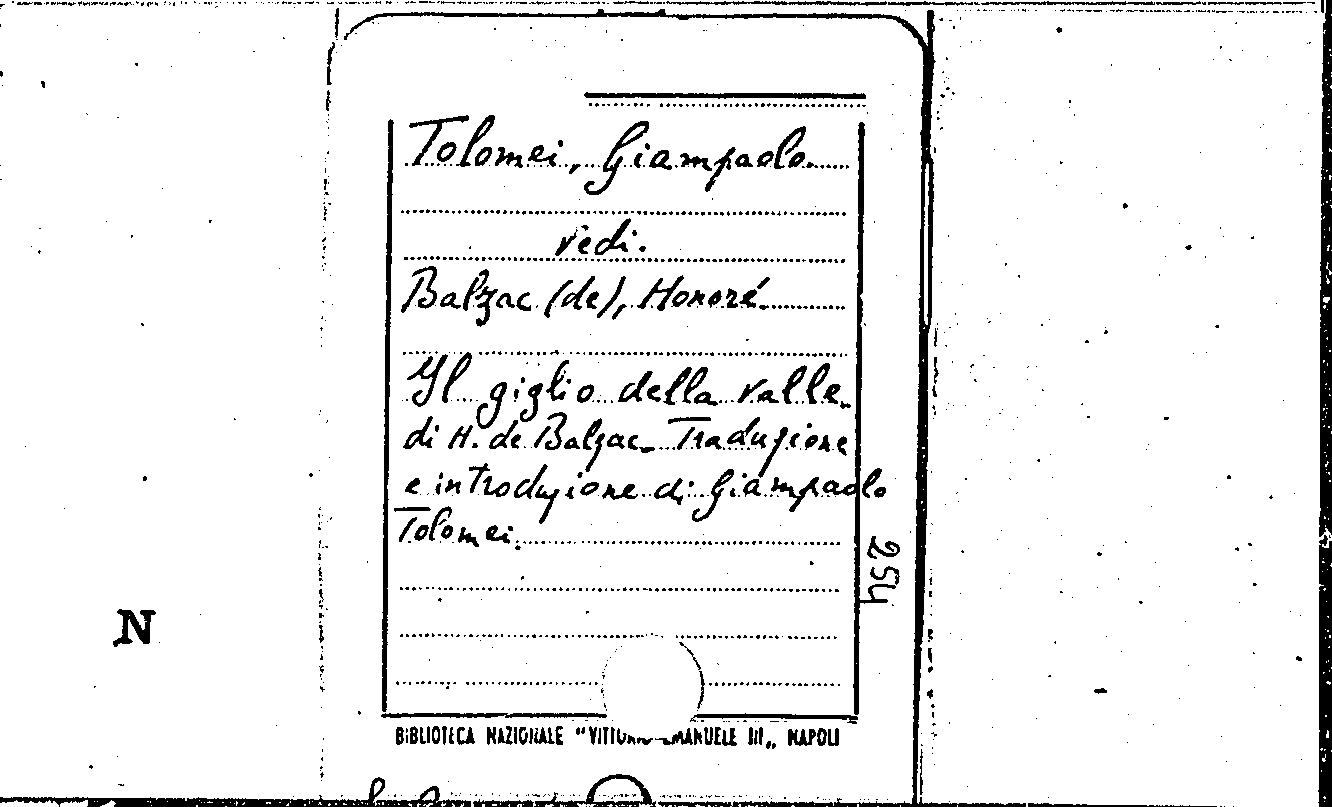 Tolomei, Giampaolo
vedi.
Balzac (de), Honoré
Il giglio della valle
di H. de Balzac_ Traduzione
e introduzione di Giampaolo
Tolomei.
254
N
BIBLIOTECA NAZIONALE "VITTORIO EMANUELE III„ NAPOLI